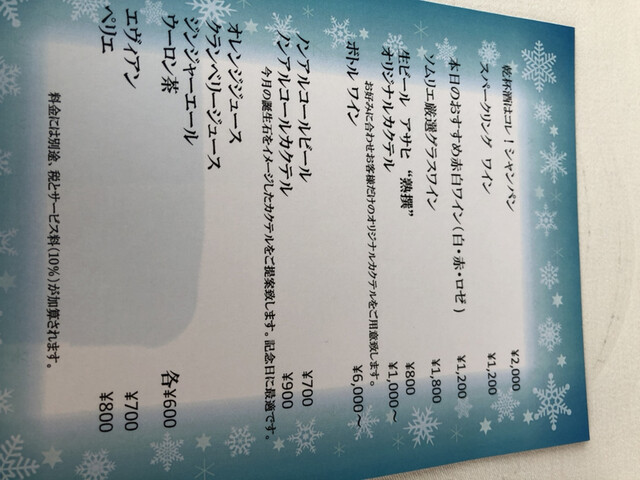 乾杯酒はコレ！シャンパン ¥2,000
スパークリング ワイン ¥1,200
本日のおすすめ赤白ワイン（白・赤・ロゼ） ¥1,200
ソムリエ厳選グラスワイン ¥1,800
生ビール アサヒ “熟撰” ¥800
オリジナルカクテル ¥1,000～
お好みに合わせお客様だけのオリジナルカクテルをご用意致します。
ボトル ワイン ¥6,000～
ノンアルコールビール ¥700
ノンアルコールカクテル ¥900
今月の誕生石をイメージしたカクテルをご提案致します。記念日に最適です。
オレンジジュース
クランベリージュース
ジンジャーエール
ウーロン茶 各¥600
エヴィアン ¥700
ペリエ ¥800
料金には別途、税とサービス料（10%）が加算されます。